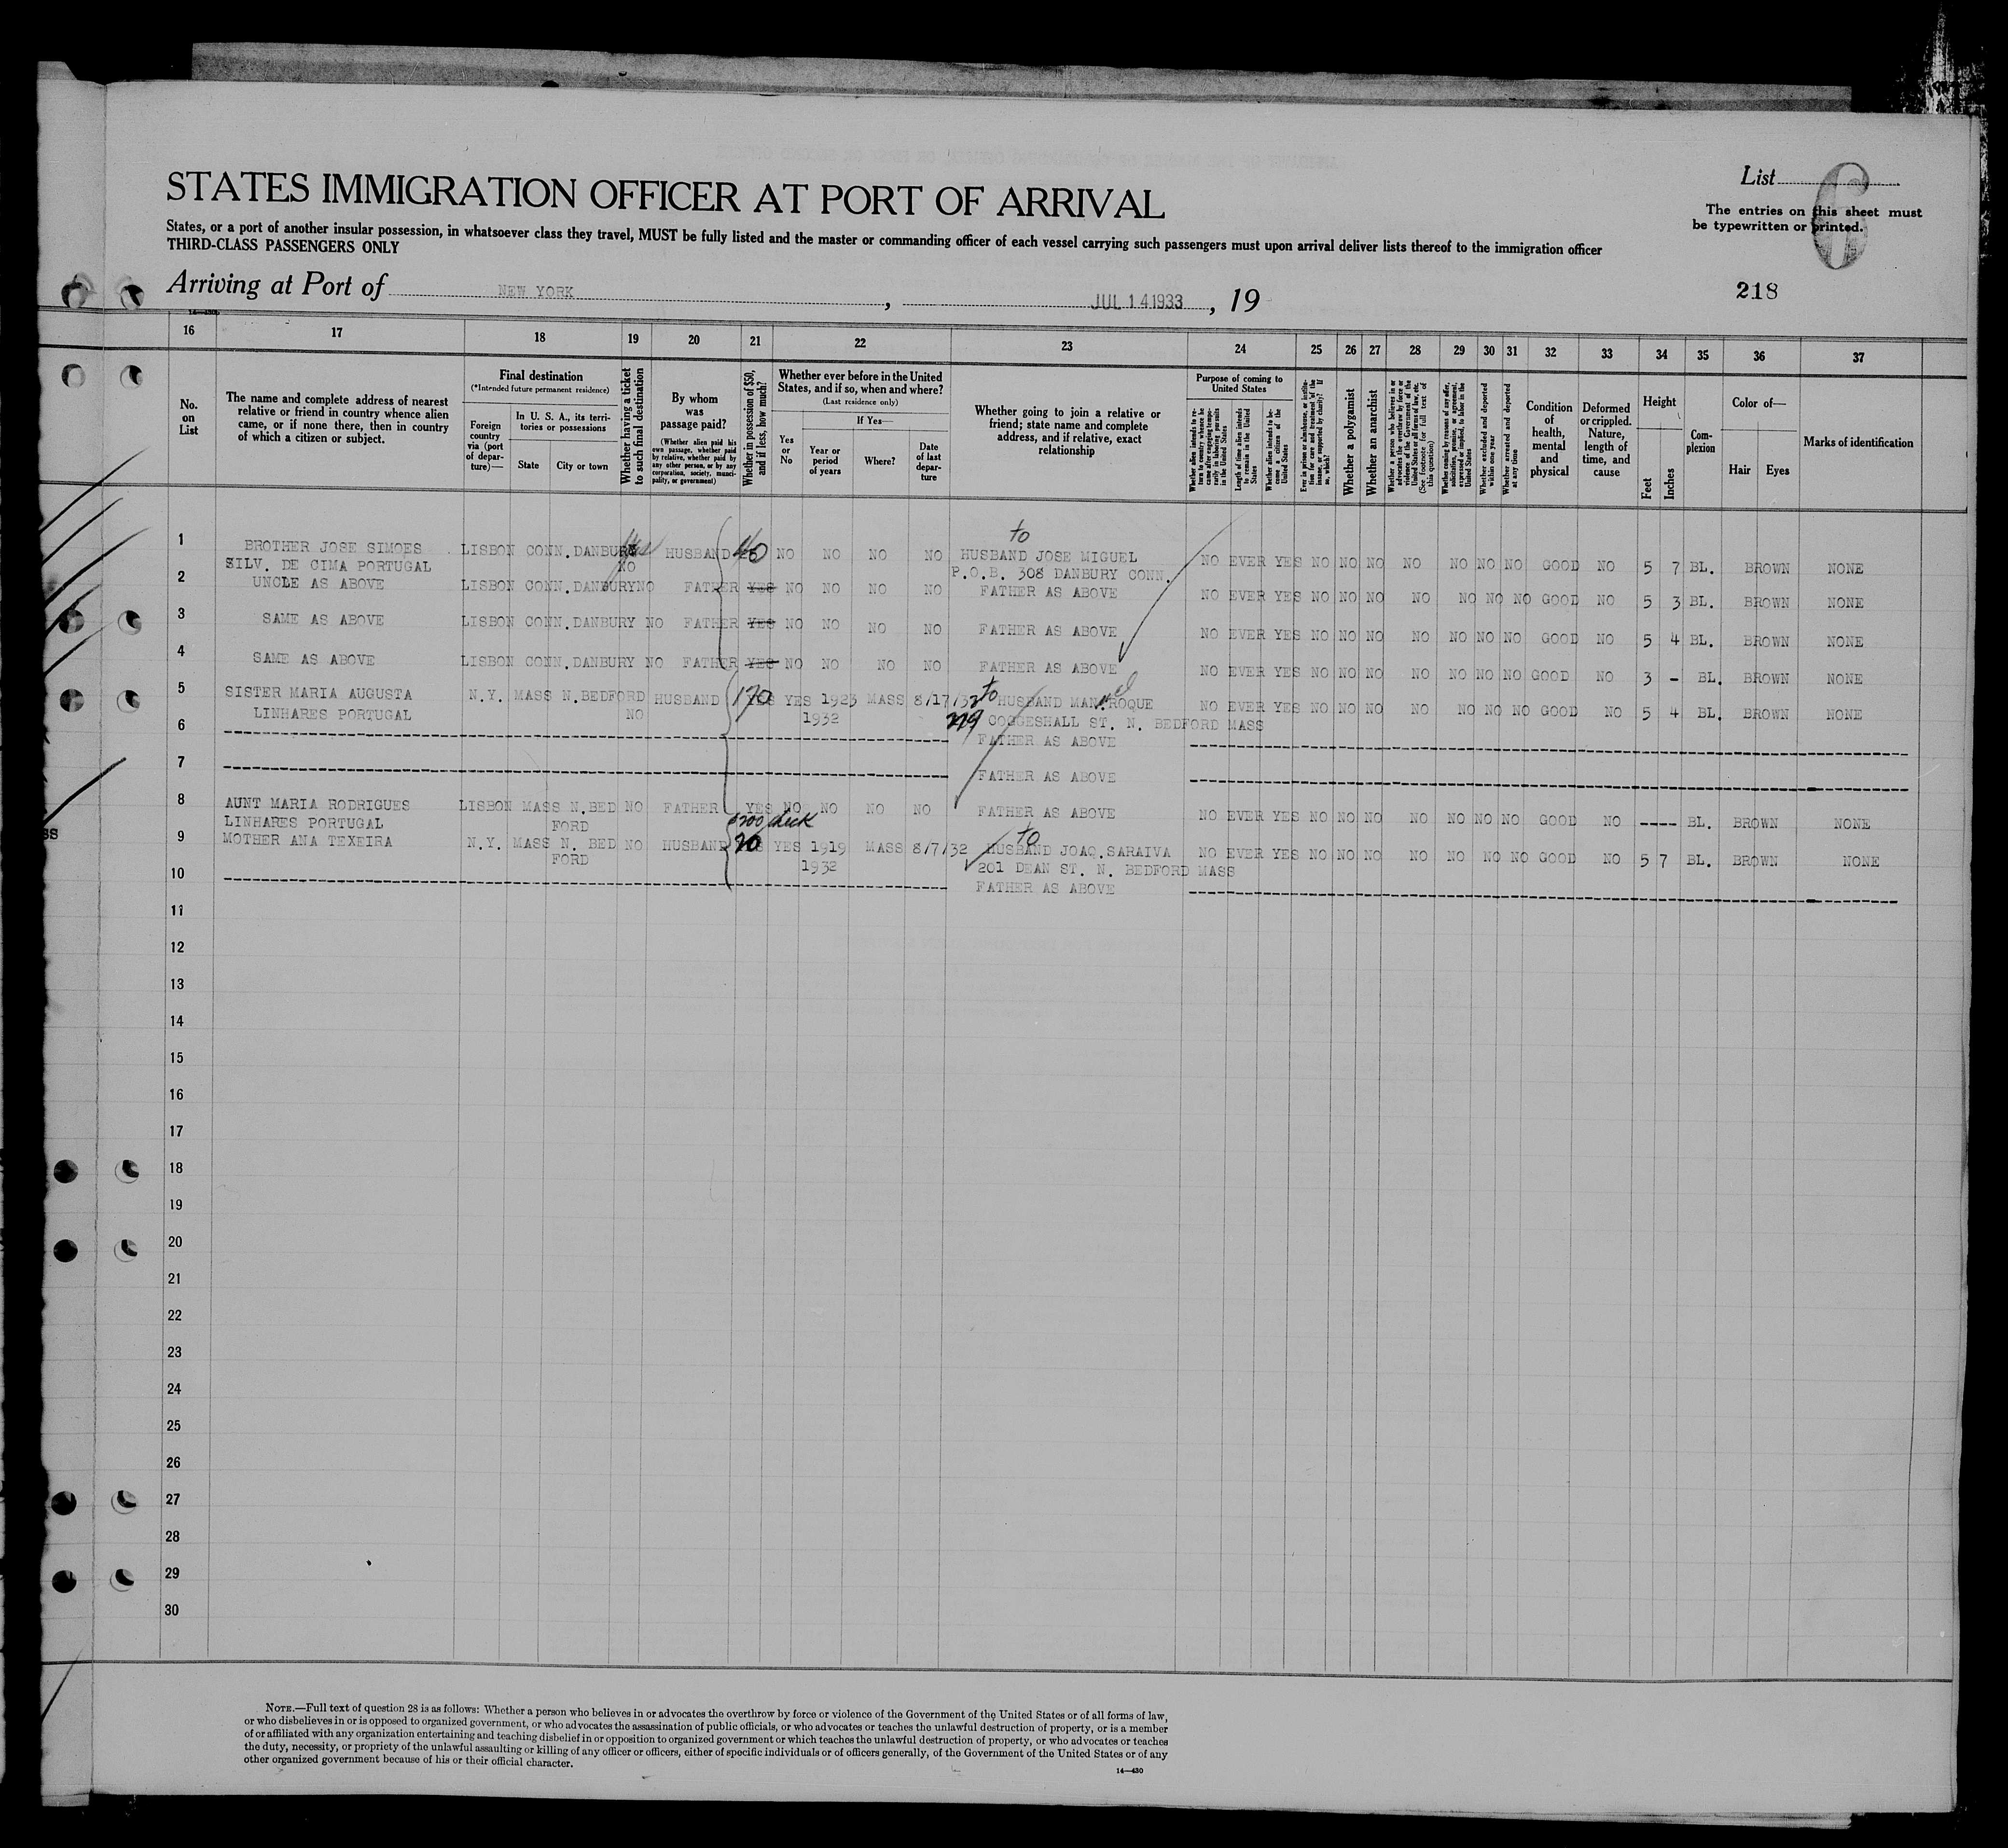 List
6
The entries on this sheet must
be typewritten or printed.
STATES IMMIGRATION OFFICER AT PORT OF ARRIVAL
States, or a port of another insular possession, in whatsoever class they travel, MUST be fully listed and the master or commanding officer of each vessel carrying such passengers must upon arrival deliver lists thereof to the immigration officer
THIRD-CLASS PASSENGERS ONLY
Arriving at Port of NEW YORK, JUL 14 1933, 19
218
16 17 18 19 20 21 22 23 24 25 26 27 28 29 30 31 32 33 34 35 36 37
No. on List
The name and complete address of nearest relative or friend in country whence alien came, or if none there, then in country of which a citizen or subject.
Final destination
(*Intended future permanent residence)
Foreign country via (port of departure)—
In U. S. A., its territories or possessions
State
City or town
Whether having a ticket to such final destination
By whom was passage paid?
(Whether alien paid his own passage, whether paid by relative, whether paid by any other person, or by any corporation, society, municipality, or government)
Whether in possession of $50, and if less, how much?
Whether ever before in the United States, and if so, when and where?
(Last residence only)
Yes or No
If Yes—
Year or period of years
Where?
Date of last departure
Whether going to join a relative or friend; state name and complete address, and if relative, exact relationship
Purpose of coming to United States
Length of time alien intends to remain in the United States
Whether alien intends to become a citizen of the United States
Whether a polygamist
Whether an anarchist
(See footnote for full text of this question)
Whether excluded and deported within one year
Whether arrested and deported at any time
Condition of health, mental and physical
Deformed or crippled. Nature, length of time, and cause
Height
Feet
Inches
Complexion
Color of—
Hair
Eyes
Marks of identification
1 BROTHER JOSE SIMOES LISBON CONN. DANBURY HUSBAND 40 NO NO NO NO to HUSBAND JOSE MIGUEL NO EVER YES NO NO NO NO NO NO NO GOOD NO 5 7 BL. BROWN NONE
SILV. DE CIMA PORTUGAL NO P.O.B. 308 DANBURY CONN.
2 UNCLE AS ABOVE LISBON CONN. DANBURY NO FATHER YES NO NO NO NO FATHER AS ABOVE NO EVER YES NO NO NO NO NO NO NO GOOD NO 5 3 BL. BROWN NONE
3 SAME AS ABOVE LISBON CONN. DANBURY NO FATHER YES NO NO NO NO FATHER AS ABOVE NO EVER YES NO NO NO NO NO NO NO GOOD NO 5 4 BL. BROWN NONE
4 SAME AS ABOVE LISBON CONN. DANBURY NO FATHER YES NO NO NO NO FATHER AS ABOVE NO EVER YES NO NO NO NO NO NO NO GOOD NO 3 - BL. BROWN NONE
5 SISTER MARIA AUGUSTA N.Y. MASS N.BEDFORD HUSBAND 170 YES YES 1923 MASS 8/17/32 to HUSBAND MAN. ROQUE NO EVER YES NO NO NO NO NO NO NO GOOD NO 5 4 BL. BROWN NONE
LINHARES PORTUGAL NO 1932 279 COGGESHALL ST. N. BEDFORD MASS
6 FATHER AS ABOVE
7 FATHER AS ABOVE
8 AUNT MARIA RODRIGUES LISBON MASS N.BED NO FATHER YES NO NO NO NO FATHER AS ABOVE NO EVER YES NO NO NO NO NO NO NO GOOD NO ---- BL. BROWN NONE
LINHARES PORTUGAL FORD
9 MOTHER ANA TEXEIRA N.Y. MASS N. BED NO HUSBAND 70 YES 1919 MASS 8/7/32 to HUSBAND JOAQ. SARAIVA NO EVER YES NO NO NO NO NO NO NO GOOD NO 5 7 BL. BROWN NONE
FORD 1932 201 DEAN ST. N. BEDFORD MASS
10 FATHER AS ABOVE
11
12
13
14
15
16
17
18
19
20
21
22
23
24
25
26
27
28
29
30
NOTE.—Full text of question 28 is as follows: Whether a person who believes in or advocates the overthrow by force or violence of the Government of the United States or of all forms of law,
or who disbelieves in or is opposed to organized government, or who advocates the assassination of public officials, or who advocates or teaches the unlawful destruction of property, or is a member
of or affiliated with any organization entertaining and teaching disbelief in or opposition to organized government or which teaches the unlawful destruction of property, or who advocates or teaches
the duty, necessity, or propriety of the unlawful assaulting or killing of any officer or officers, either of specific individuals or of officers generally, of the Government of the United States or of any
other organized government because of his or their official character.
14—430